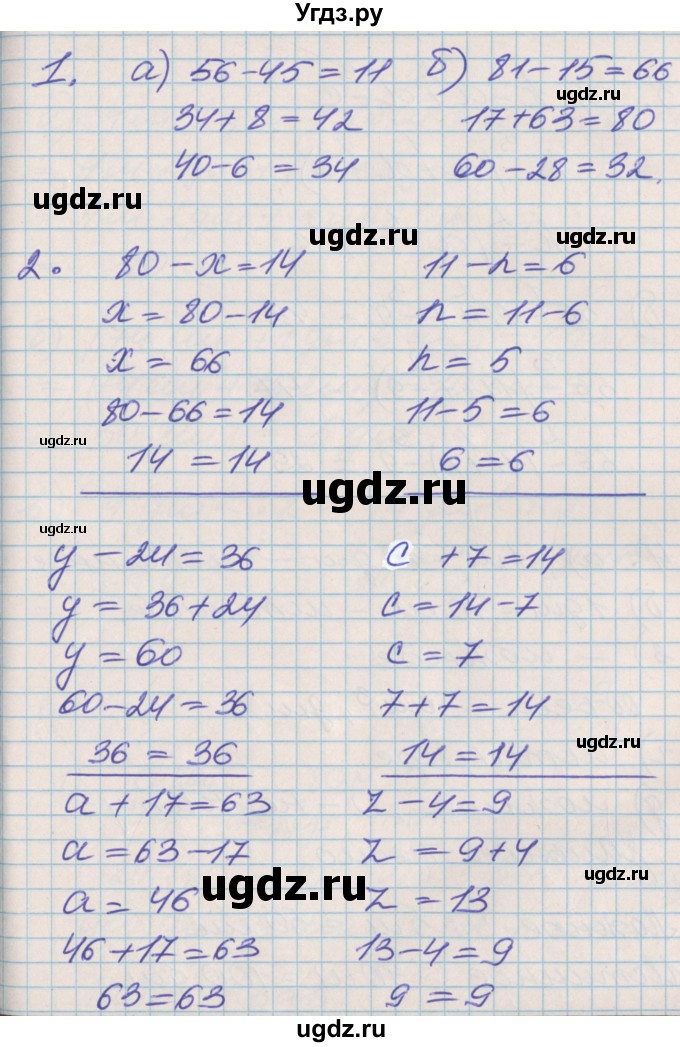 Угдз.ру
1. а) 56-45=11 б) 81-15=66
ugdz.ru
34+8=42 17+63=80
40-6=34 60-28=32.
ugdz.ru
ugdz.ru
2. 80-x=14 11-n=6
x=80-14 n=11-6
x=66 n=5
80-66=14 11-5=6
ugdz.ru
14=14 6=6
ugdz.ru
ugdz.ru
y-24=36 c+7=14
y=36+24 c=14-7
y=60 c=7
60-24=36 7+7=14
36=36 14=14
ugdz.ru
a+17=63 z-4=9
a=63-17 z=9+4
ugdz.ru
ugdz.ru
a=46 z=13
46+17=63 13-4=9
63=63 9=9
ugdz.ru